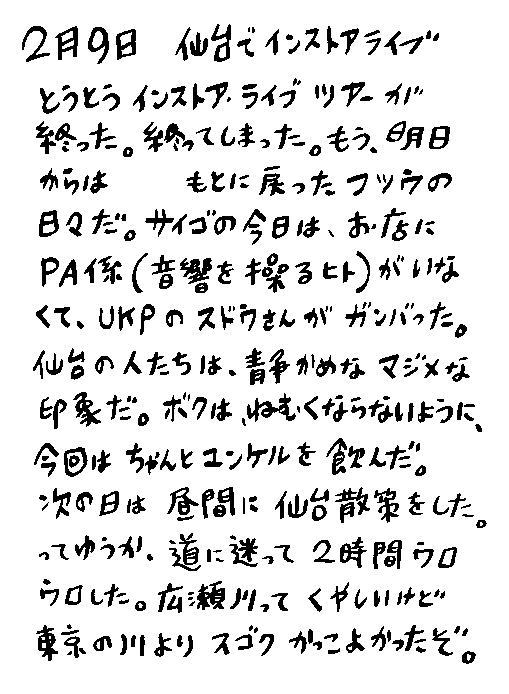 2月9日 仙台でインストアライブ
とうとうインストア・ライブツアーが
終った。終ってしまった。もう、明日
からは もとに戻ったフツウの
日々だ。サイゴの今日は、お店に
PA係(音響を操るヒト)がいな
くて、UKPのスドウさんがガンバった。
仙台の人たちは、静かめなマジメな
印象だ。ボクは、ねむくならないように、
今回はちゃんとユンケルを飲んだ。
次の日は昼間に仙台散策をした。
ってゆうか、道に迷って2時間ウロ
ウロした。広瀬川ってくやしいけど
東京の川よりスゴクかっこよかったぞ。